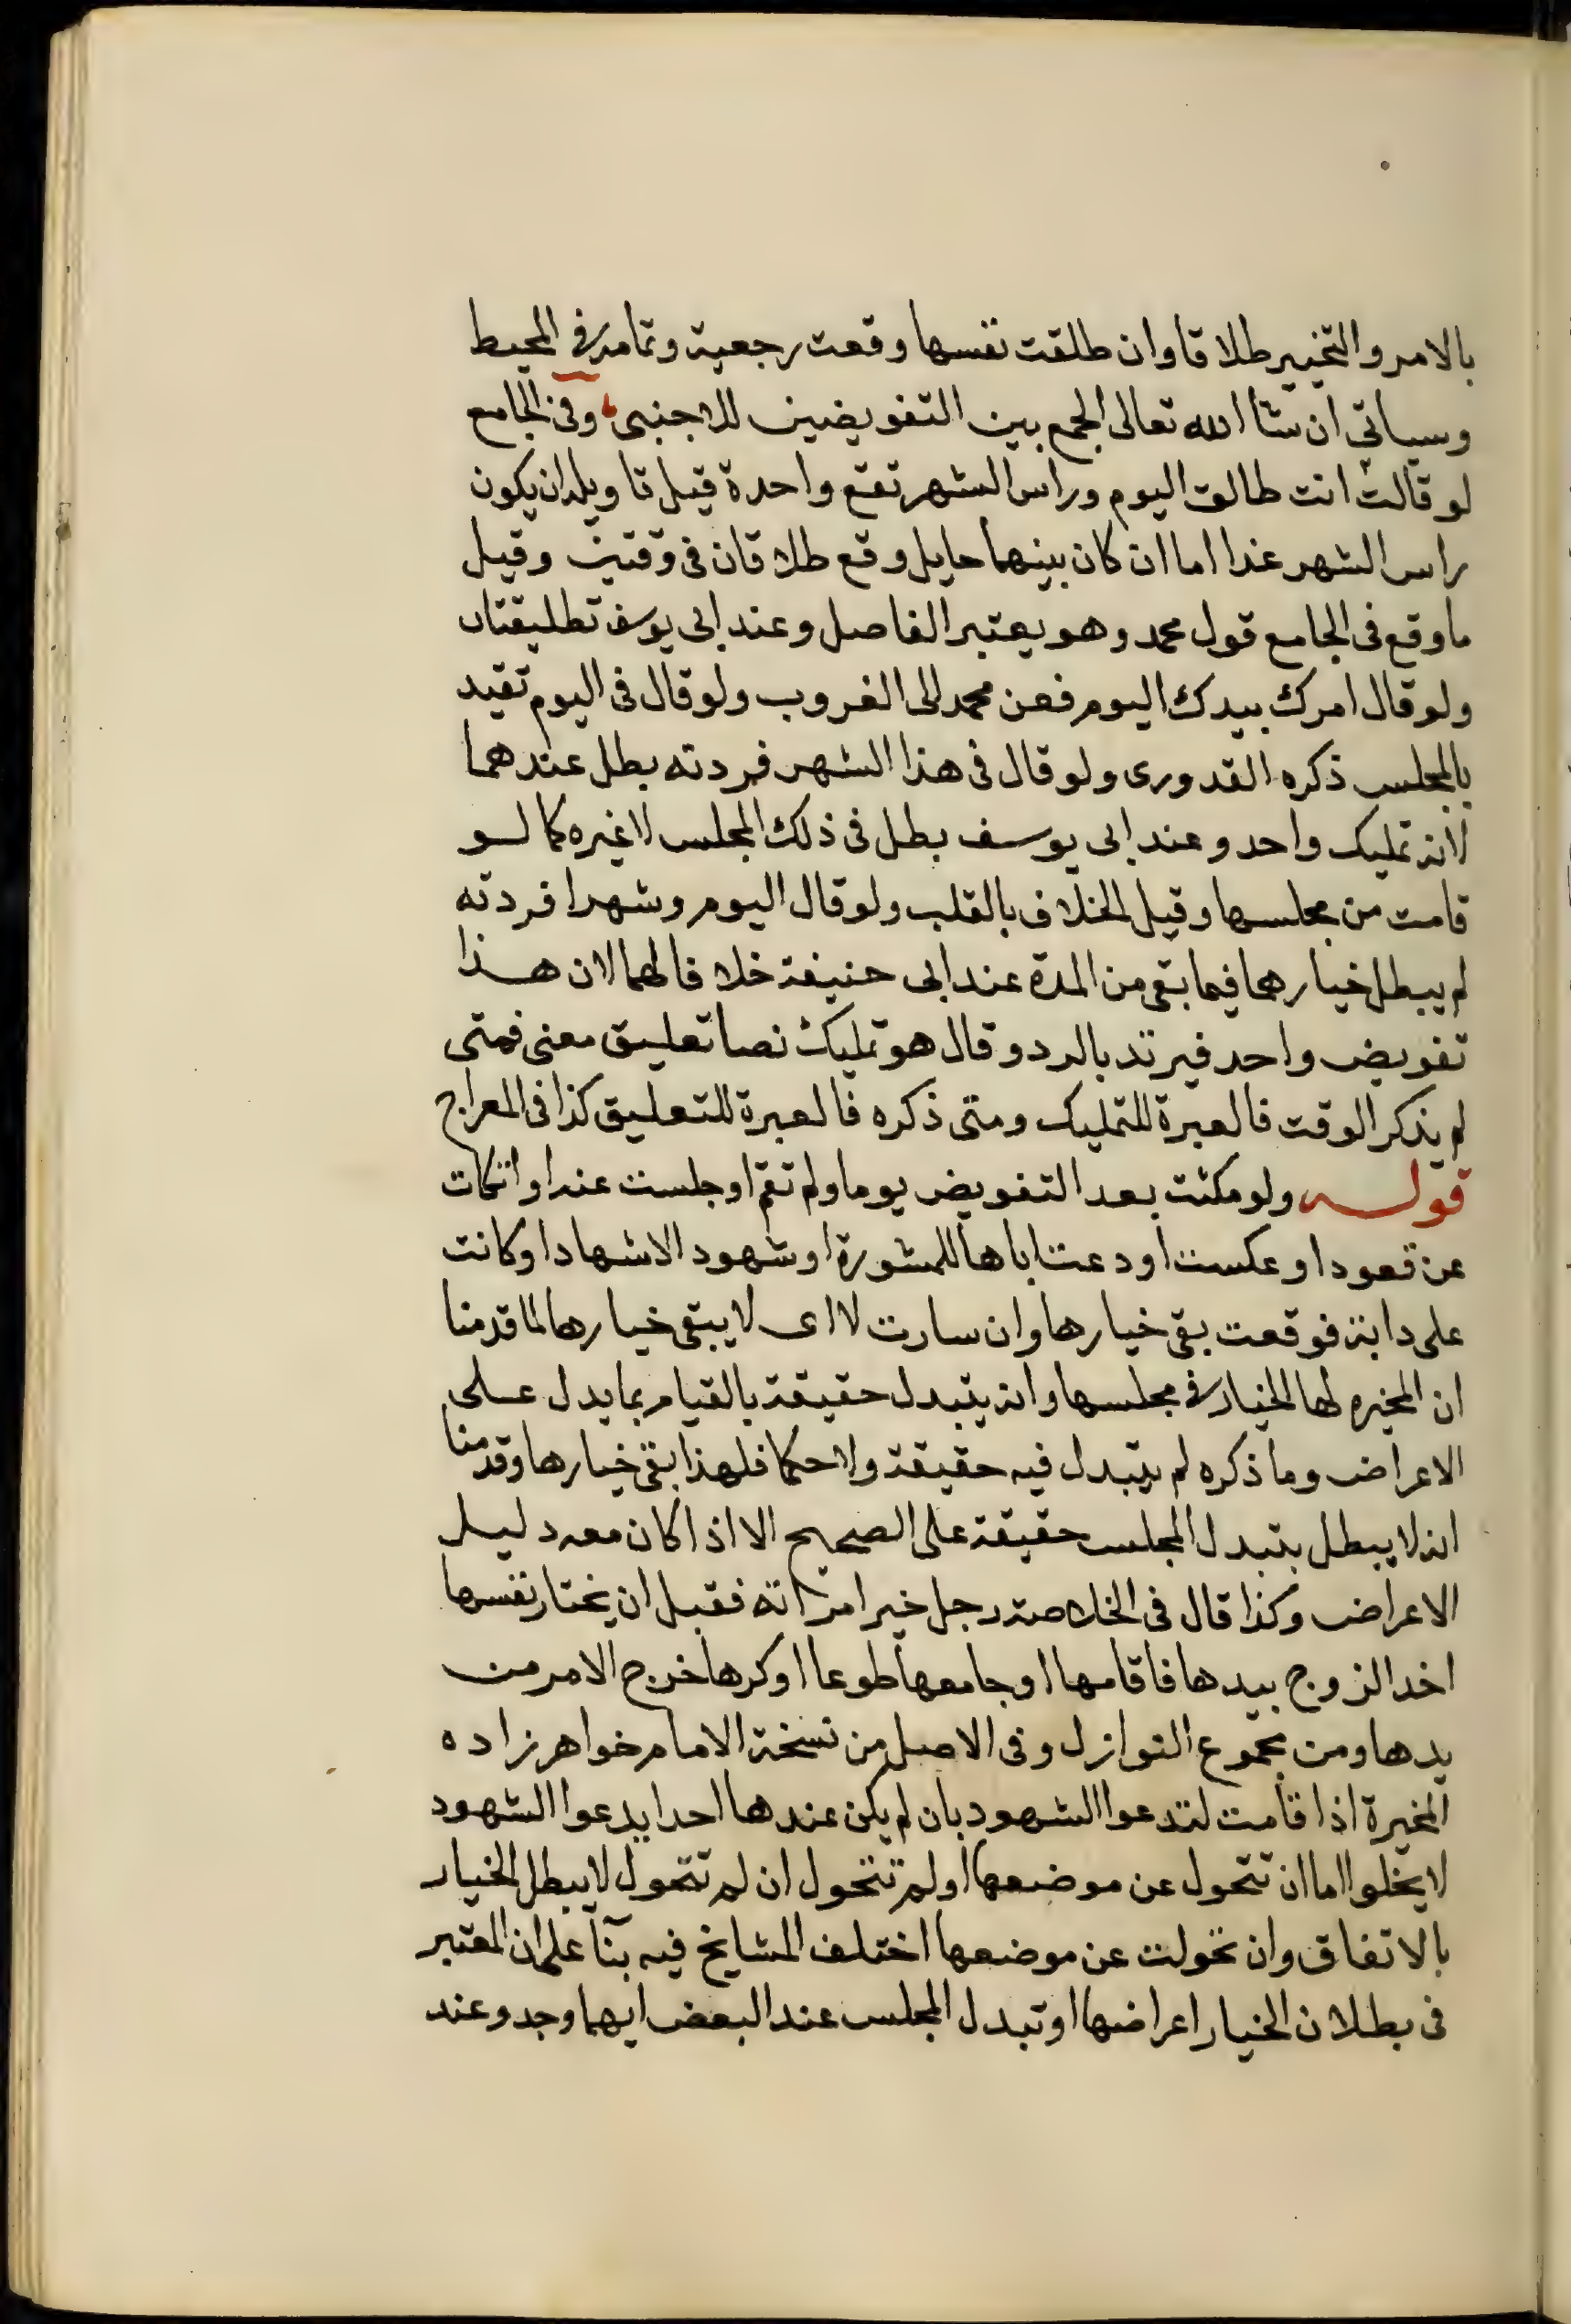 بالامر والتخيير طلاقا وان طلقت نفسها وقعت رجعية وتمامه في المحيط
وسياتي ان شا الله تعالى الجمع بين التفويضين للاجنبي وفي الجامع
لو قالت انت طالق اليوم وراس الشهر تقع واحدة قيل تاويله ان يكون
راس الشهر غدا اما ان كان بينهما حايل وقع طلاقان في وقتين وقيل
ماوقع في الجامع قول محمد وهو يعتبر الفاصل وعند ابي يوسف تطليقتان
ولو قال امرك بيدك اليوم فعن محمد الى الغروب ولو قال في اليوم تقيد
بالمجلس ذكره القدورى ولو قال في هذا الشهر فردته بطل عندهما
لانه تمليك واحد وعند ابي يوسف بطل في ذلك المجلس لاغيره كما لو
قامت من مجلسها وقيل الخلاف بالقلب ولو قال اليوم وشهرا فردته
لم يبطل خيارها فيما بقي من المدة عند ابي حنيفة خلافا لهما لان هذا
تفويض واحد فيرتد بالرد وقال هو تمليك نصا تعليق معنى فمتى
لم يذكر الوقت فالعبرة للتمليك ومتى ذكره فالعبرة للتعليق كذا في المعراج
قوله ولو مكثت بعد التفويض يوما ولم تقم اوجلست عندا واتكات
عن قعود اوعكست اودعت اباها للمشورة اوشهود الاشهادا وكانت
على دابة فوقعت بقي خيارها وان سارت لا اى لا يبقى خيارها لما قدمنا
ان المخيره لها الخيار في مجلسها وانه يتبدل حقيقة بالقيام بما يدل على
الاعراض وما ذكره لم يتبدل فيه حقيقة ولا حكما فلهذا بقي خيارها وقدمنا
انه لا يبطل بتبدل المجلس حقيقة على الصحيح الا اذا كان معه دليل
الاعراض وكذا قال في الخلاصة رجل خير امراته فقبل ان يختار نفسها
اخد الزوج بيدها فاقامها اوجامعها طوعا اوكرها خرج الامر من
يدها ومن مجموع النوازل وفي الاصل من نسخة الامام خواهر زاده
المخيرة اذا قامت لتدعوا الشهود بان لم يكن عندها احدا يدعوا الشهود
لا يخلوا اما ان تتحول عن موضعها اولم تتحول ان لم تتحول لا يبطل الخيار
بالاتفاق وان تحولت عن موضعها اختلف المشايخ فيه بنآ على ان المعتبر
في بطلان الخيار اعراضها اوتبدل المجلس عند البعض ايهما وجد وعند